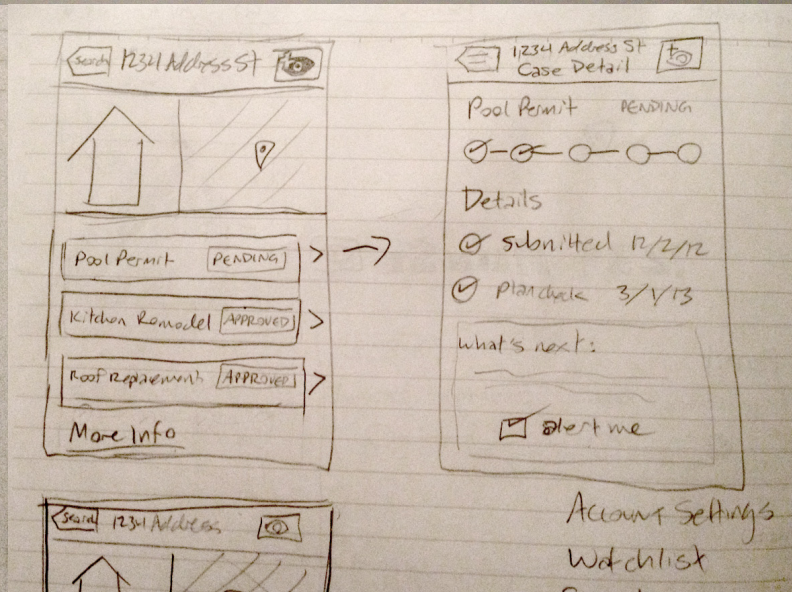 Search 1234 Address St
Pool Permit PENDING
Kitchen Remodel APPROVED
Roof Replacement APPROVED
More Info
1234 Address St
Case Detail
Pool Permit PENDING
Details
Submitted 12/2/12
Plan check 3/1/13
What's next:
alert me
Search 1234 Address
Account Settings
Watchlist